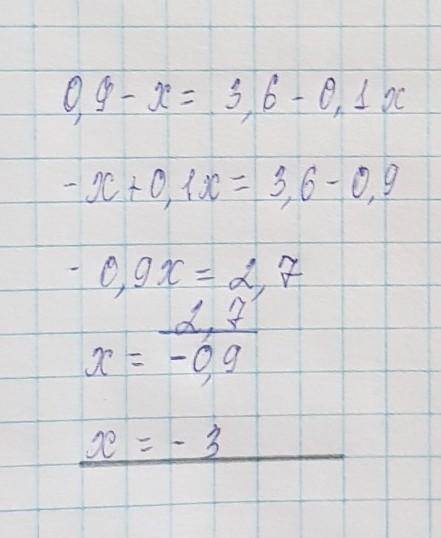 0,9 - x = 3,6 - 0,1x
-x + 0,1x = 3,6 - 0,9
- 0,9x = 2,7
x = 2,7 / -0,9
x = - 3